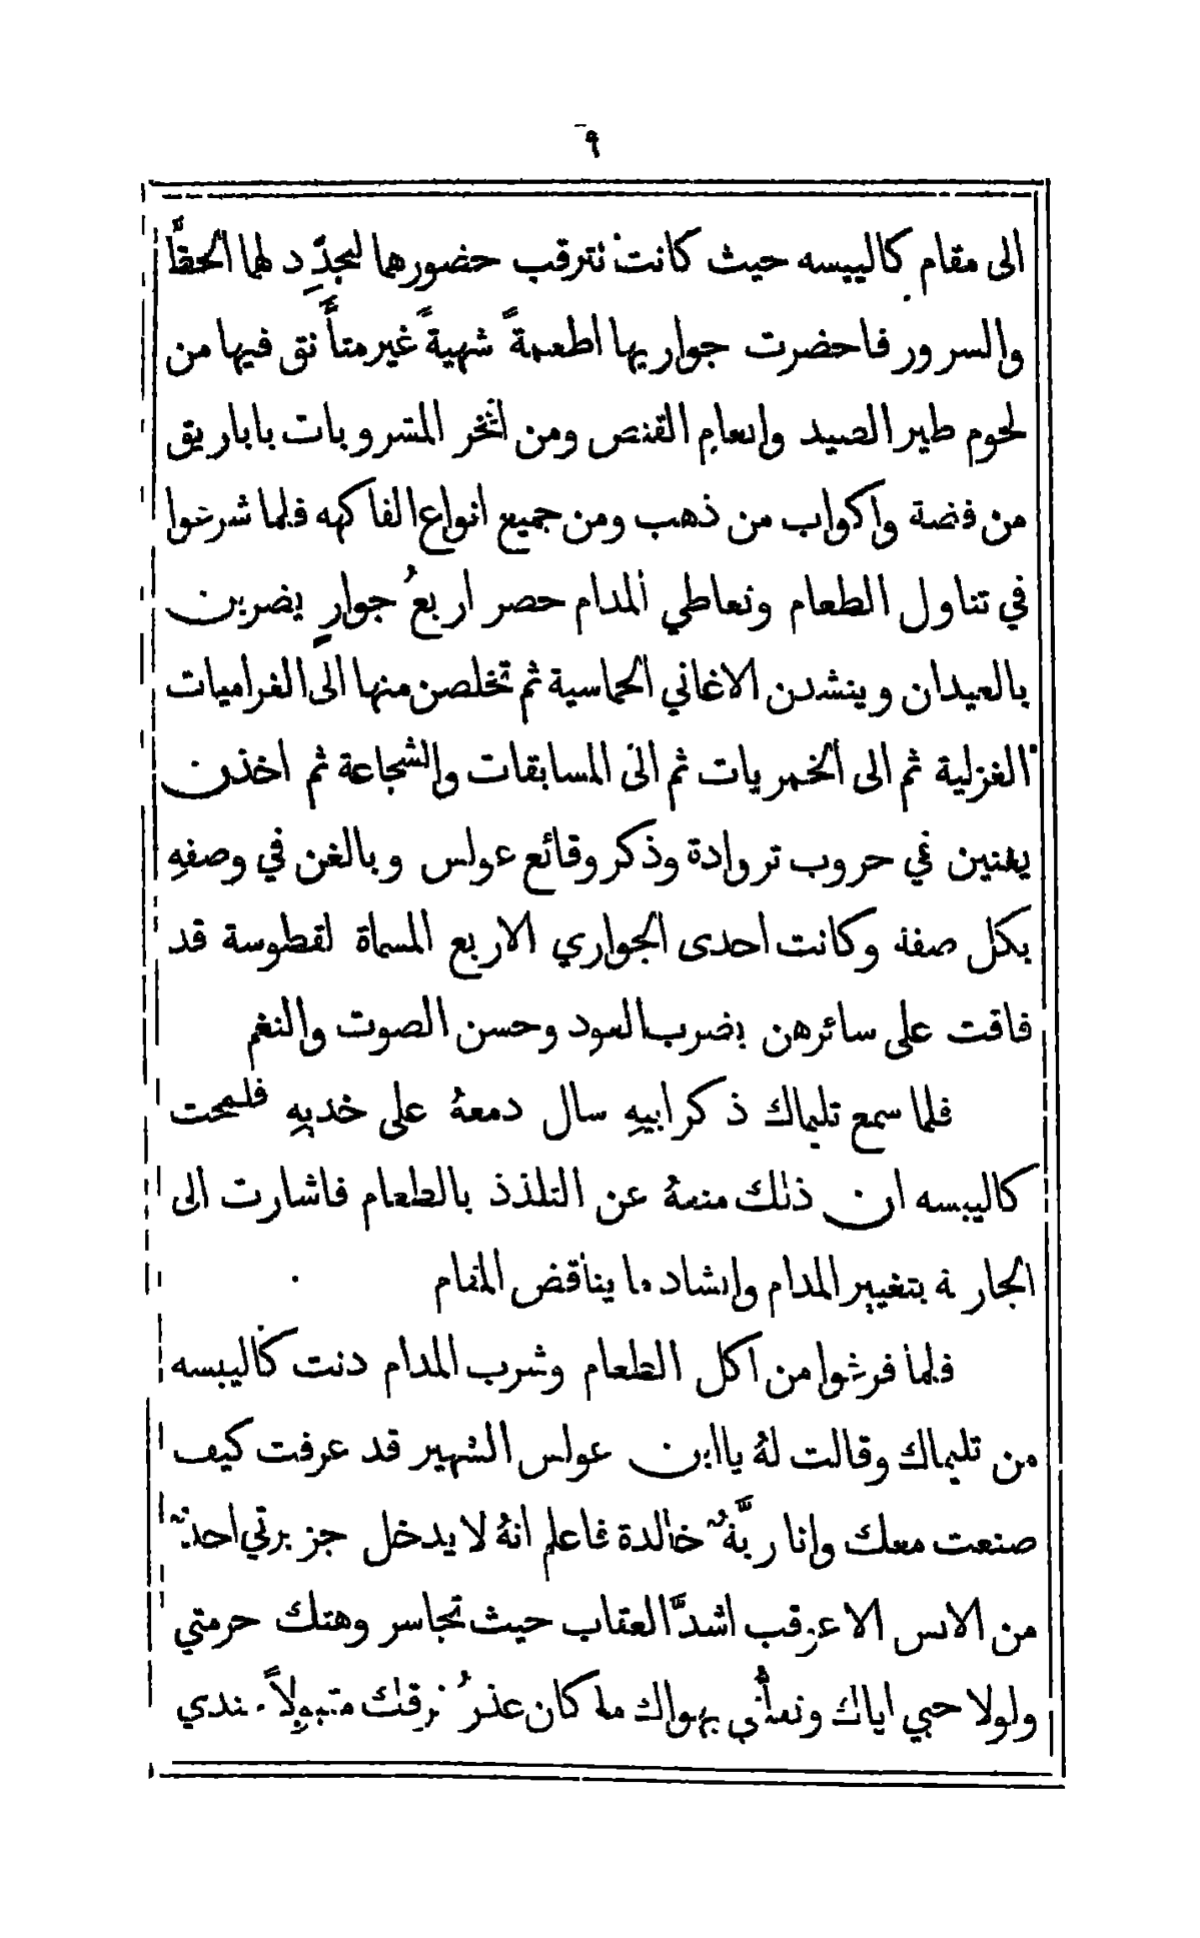 ٩
الى مقام كالبيسه حيث كانت تترقب حضورهما ليجدِّد لهما الحظَّ
والسرور فاحضرت جواريها اطعمةً شهيةً غير متأَنق فيها من
لحوم طير الصيد وانعام القنص ومن افخر المشروبات باباريق
من فضة واكواب من ذهب ومن جميع انواع الفاكهه فلما شرعوا
في تناول الطعام وتعاطي المدام حصر اربعُ جوارٍ يضربن
بالعيدان وينشدن الاغاني الحماسية ثم تخلصن منها الى الغراميات
الغزلية ثم الى الخمريات ثم الى المسابقات والشجاعة ثم اخذن
يغنين في حروب تروادة وذكر وقائع عولس وبالغن في وصفهِ
بكل صفة وكانت احدى الجواري الاربع المسماة لقطوسة قد
فاقت على سائرهن بضرب العود وحسن الصوت والنغم
فلما سمع تليماك ذكر ابيهِ سال دمعهُ على خديهِ فلمحت
كاليبسه ان ذلك منعهُ عن التلذذ بالطعام فاشارت الى
الجارية بتغيير المدام وانشاد ما يناقض المقام
فلما فرغوا من اكل الطعام وشرب المدام دنت كاليبسه
من تليماك وقالت لهُ ياابن عولس الشهير قد عرفت كيف
صنعت معك وانا ربَّةٌ خالدة فاعلم انهُ لا يدخل جزيرتي احدٌ
من الانس الا عوقب اشدَّ العقاب حيث تجاسر وهتك حرمتي
ولولا حبي اياك وتعلُّقي بهواك ما كان عذرُ غرقك مقبولاً عندي